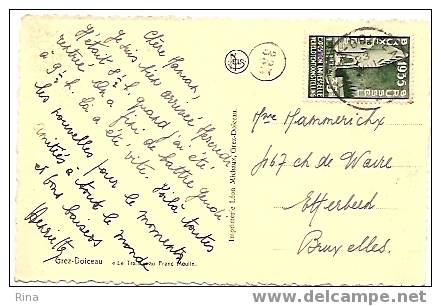 Chère Maman,
Je suis bien arrivée Mercredi
Il était 8½ h. quand j'ai été
rentré. On a fini de battre Jeudi
à 9½ h. Ça a été vite. Voilà toutes
les nouvelles pour le moment.
Amitiés à tout le monde
et bons baisers
Henriette
Grez-Doiceau
« Le Tra... au Franc Moulin.
Imprimerie Léon Michaux, Grez-Doiceau
1935
Mme Hammerichx
467 ch de Wavre
Etterbeek
Bruxelles.
Rina
www.delcampe.net